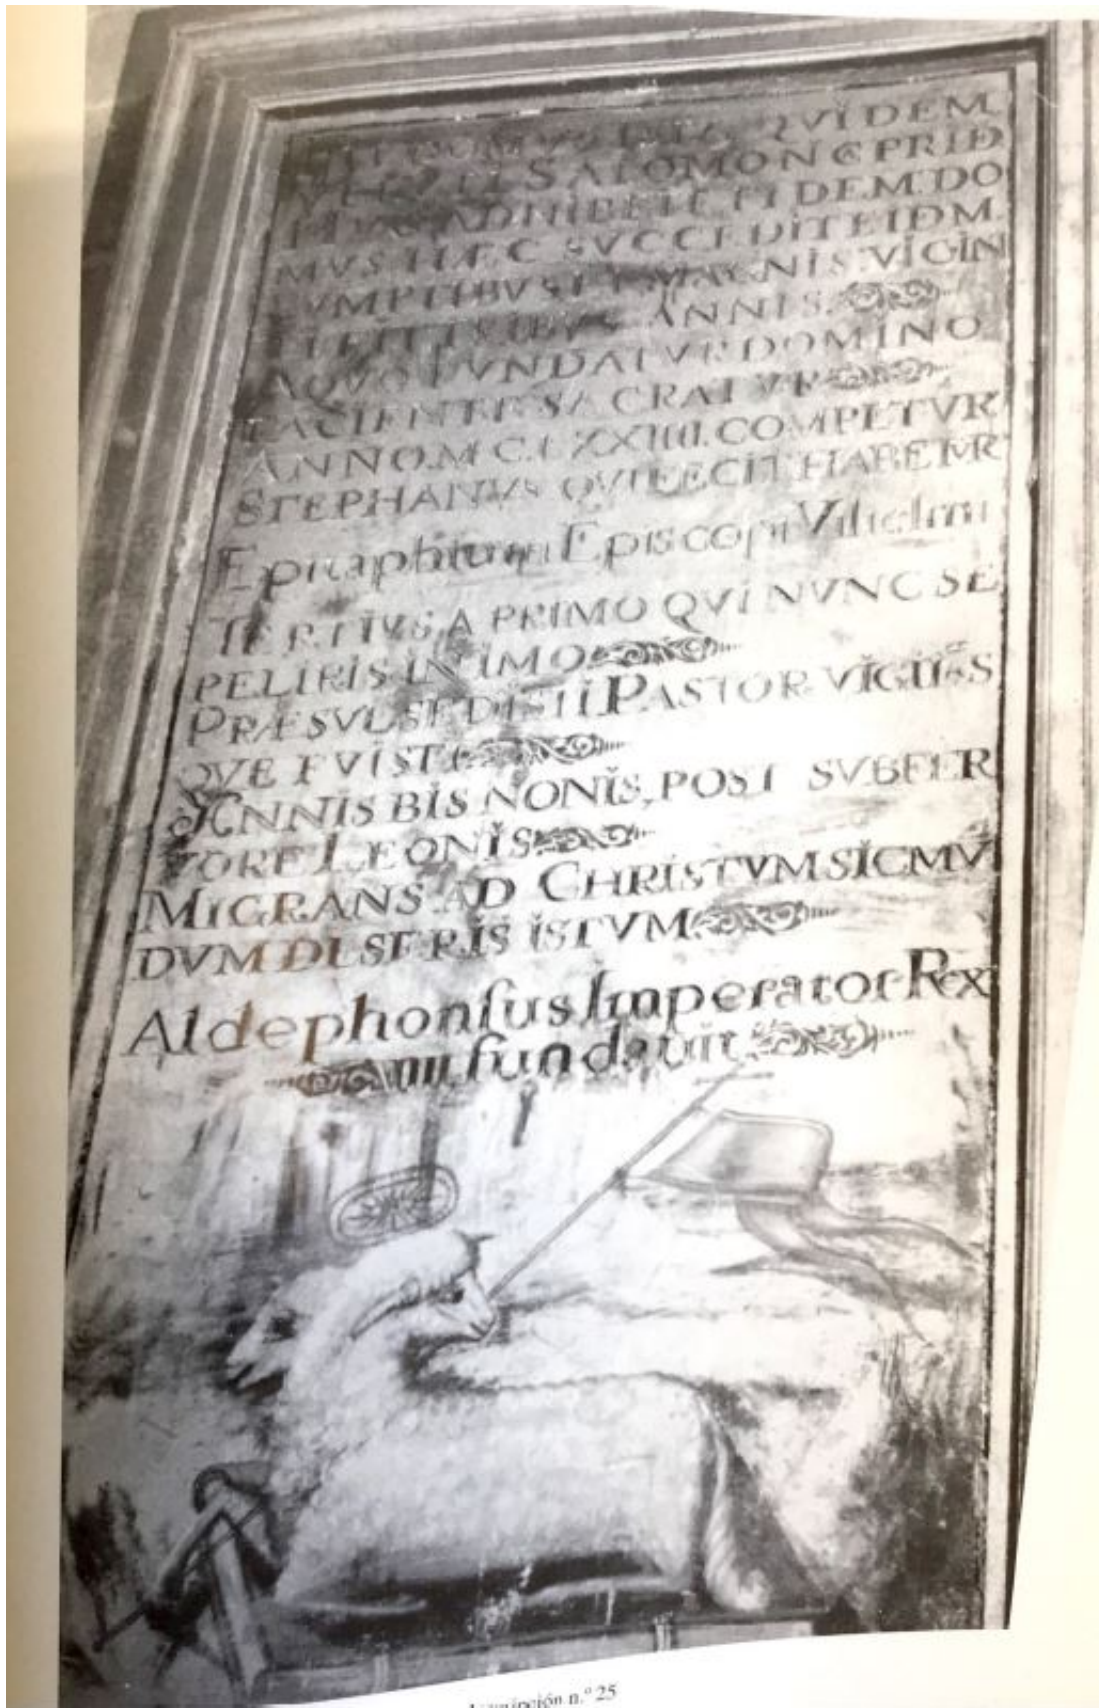 QVIDEM
SALOMONIS PRID
ADHIBETE FIDEM. DO
MVS HÆC SVCCEDIT EIDM.
SVMPTIBVS ET MAGNIS. VIGIN
ANNIS.
A QVO FVNDATVR DOMINO
FACIENTE SACRATVR
ANNO. M C. LXXIIII. COMPLETVR
STEPHANVS QVI FECIT HABETVR
Epitaphium Episcopi Vilielmi
TERTIVS A PRIMO QVI NVNC SE
PELIRIS IN IMO
PRÆSVL SEDISTI PASTOR VIGIL
QVE FVISTI
ANNIS BIS NONIS, POST SVB FER
VORE LEONIS
MIGRANS AD CHRISTVM SIC MV
DVM DESERIS ISTVM
Aldephonsus Imperator Rex
fundavit
Inscripción n.º 25